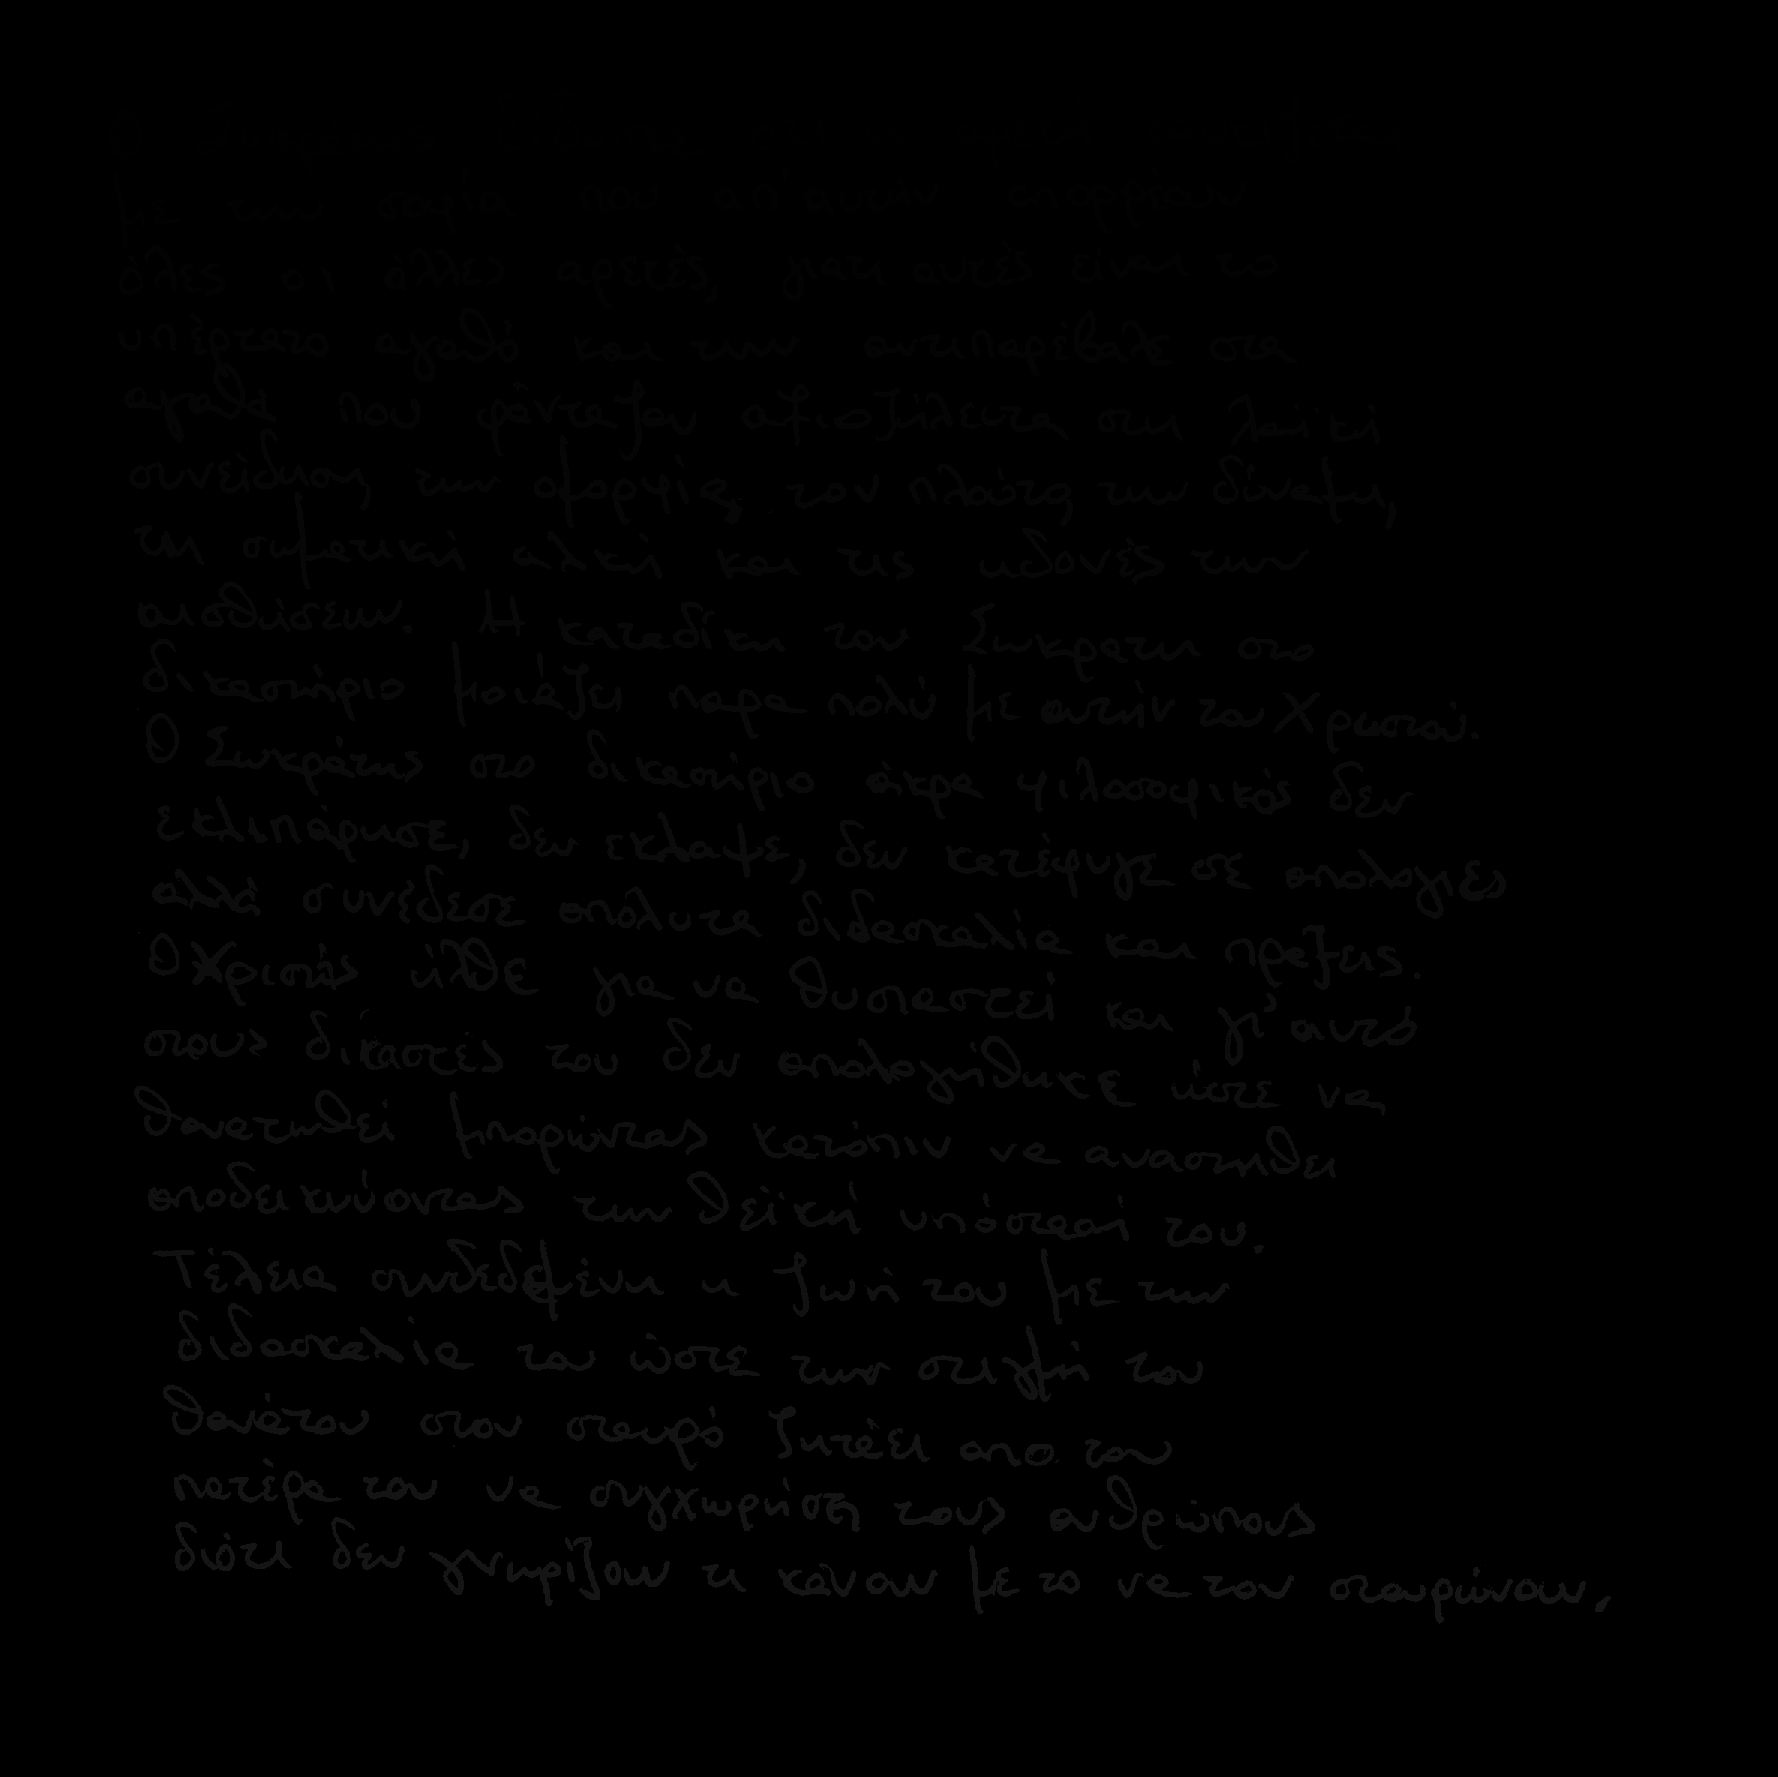 Ο Σωκράτης
με την σοφία που απ'αυτήν απορρέουν
όλες οι άλλες αρετές, γιατι αυτές είναι το
υπέρτατο αγαθό και την αντιπαρέβαλε στα
αγαθά που φάνταζαν αξιοζήλευτα στη λαϊκή
συνείδηση, την ομορφιά, τον πλούτο, την δύναμη,
τη σωματική αλκή και τις ηδονές των
αισθήσεων. Η καταδίκη του Σωκρατη στο
δικαστήριο μοιάζει παρα πολύ με αυτήν του Χριστού.
Ο Σωκράτης στο δικαστήριο άκρα φιλοσοφικός δεν
εκλιπάρησε, δεν εκλαψε, δεν κατέφυγε σε απολογιες
αλλά συνέδεσε απόλυτα διδασκαλία και πράξεις.
Ο Χριστός ήλθε για να θυσιαστεί και γι' αυτό
στους δικαστές του δεν απολογήθηκε ώστε να
θανατωθεί μπορώντας κατόπιν να αναστηθει
αποδεικνύοντας την θεϊκή υπόσταση του.
Τέλεια συνδεδεμένη η ζωή του με την
διδασκαλία του ώστε την στιγμή του
θανάτου στον σταυρό ζητάει απο τον
πατέρα του να συγχωρήση τους ανθρώπους
διότι δεν γνωρίζουν τι κάνουν με το να τον σταυρώνουν,